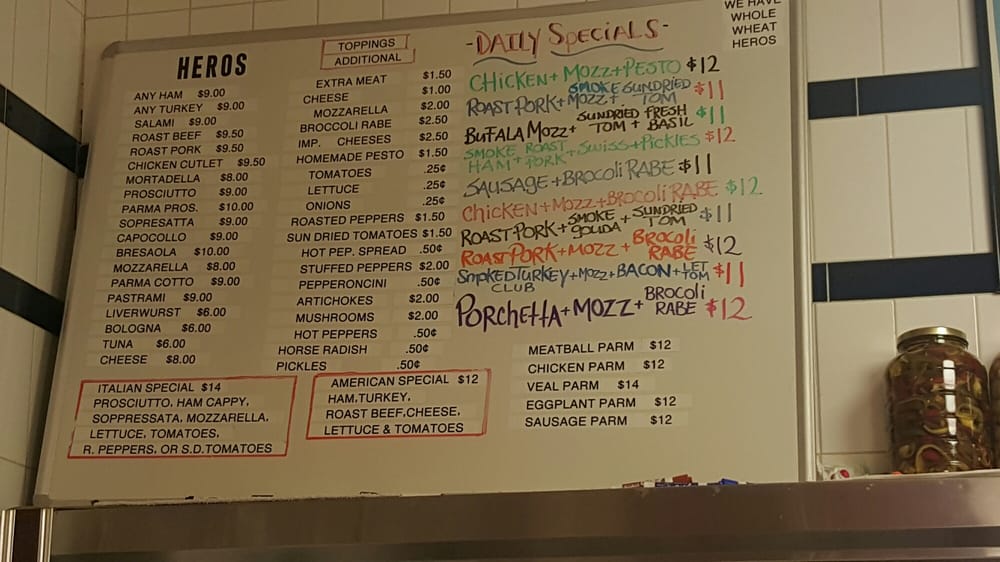 HEROS
ANY HAM $9.00
ANY TURKEY $9.00
SALAMI $9.00
ROAST BEEF $9.50
ROAST PORK $9.50
CHICKEN CUTLET $9.50
MORTADELLA $8.00
PROSCIUTTO $9.00
PARMA PROS. $10.00
SOPRESATTA $9.00
CAPOCOLLO $9.00
BRESAOLA $10.00
MOZZARELLA $8.00
PARMA COTTO $9.00
PASTRAMI $9.00
LIVERWURST $6.00
BOLOGNA $6.00
TUNA $6.00
CHEESE $8.00
ITALIAN SPECIAL $14
PROSCIUTTO, HAM CAPPY,
SOPPRESSATA, MOZZARELLA,
LETTUCE, TOMATOES,
R. PEPPERS, OR S.D.TOMATOES
TOPPINGS
ADDITIONAL
EXTRA MEAT $1.50
CHEESE $1.00
MOZZARELLA $2.00
BROCCOLI RABE $2.50
IMP. CHEESES $2.50
HOMEMADE PESTO $1.50
TOMATOES .25¢
LETTUCE .25¢
ONIONS .25¢
ROASTED PEPPERS $1.50
SUN DRIED TOMATOES $1.50
HOT PEP. SPREAD .50¢
STUFFED PEPPERS $2.00
PEPPERONCINI .50¢
ARTICHOKES $2.00
MUSHROOMS $2.00
HOT PEPPERS .50¢
HORSE RADISH .50¢
PICKLES .50¢
AMERICAN SPECIAL $12
HAM,TURKEY,
ROAST BEEF,CHEESE,
LETTUCE & TOMATOES
-DAILY SPECIALS-
CHICKEN+MOZZ+PESTO $12
ROAST PORK+MOZZ+ SMOKE SUNDRIED TOM $11
BUFALA MOZZ+ SUNDRIED FRESH TOM + BASIL $11
SMOKE HAM+ ROAST PORK+SWISS+PICKLES $12
SAUSAGE+BROCOLI RABE $11
CHICKEN+MOZZ+BROCOLI RABE $12
ROAST PORK+ SMOKE GOUDA + SUNDRIED TOM $11
ROAST PORK+MOZZ+ BROCOLI RABE $12
SMOKED TURKEY+MOZZ+BACON+LET TOM $11
CLUB
PORCHETTA+MOZZ+ BROCOLI RABE $12
MEATBALL PARM $12
CHICKEN PARM $12
VEAL PARM $14
EGGPLANT PARM $12
SAUSAGE PARM $12
WE HAVE
WHOLE
WHEAT
HEROS